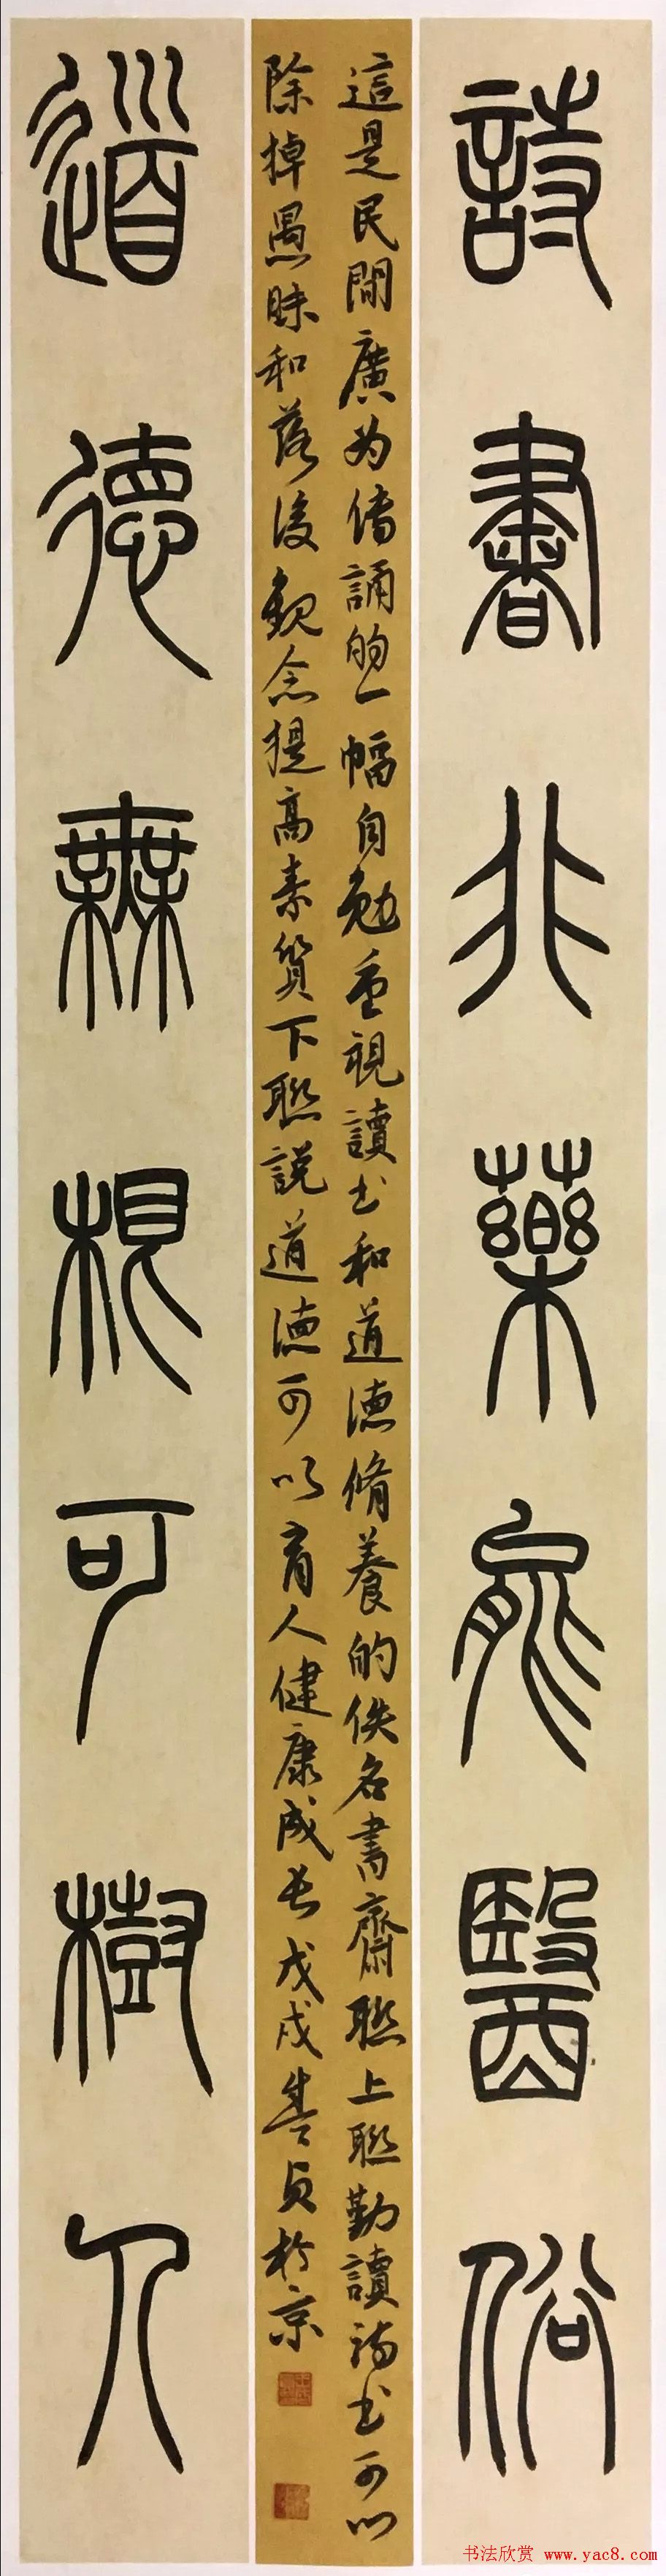 詩書非藥能醫俗
道德無根可樹人
這是民間廣为傳誦的一幅自勉重視讀书和道德脩養的佚名書齋聯上聯勤讀詩书可以
除掉愚昧和落後觀念提高素質下聯説道德可以育人健康成长戊戌春貞於京
书法欣赏 www.yac8.com